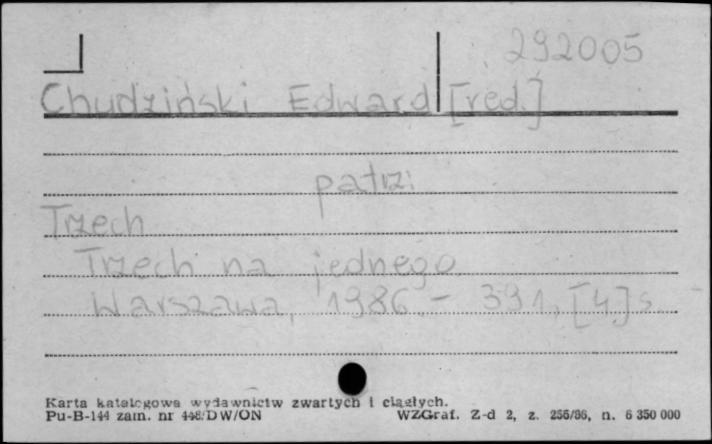 292005
Chudziński Edward [red.]
patrz:
Trzech
Trzech na jednego
Warszawa, 1986. - 391, [4] s.
Karta katalogowa wydawnictw zwartych i ciągłych.
Pu-B-144 zam. nr 448/DW/ON WZGraf. Z-d 2, z. 256/86, n. 6 350 000